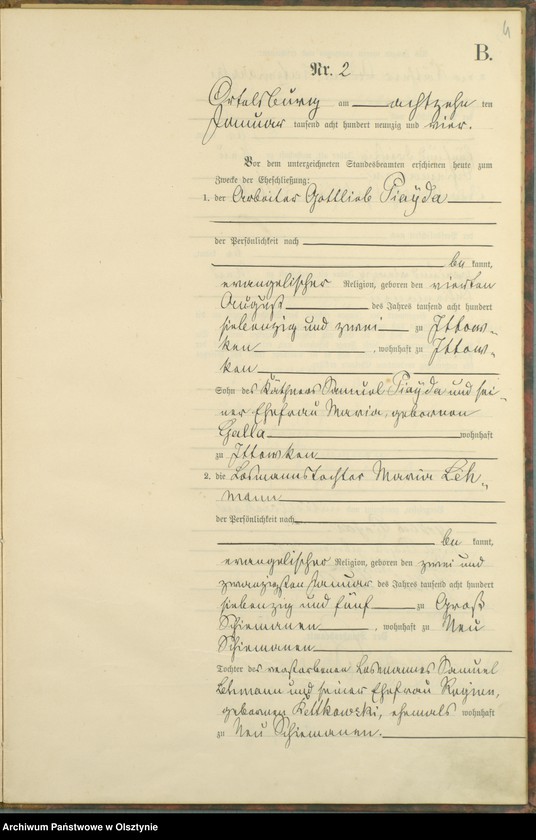 4
B.
Nr. 2
Ortelsburg am achtzehn ten
Januar tausend acht hundert neunzig und vier.
Vor dem unterzeichneten Standesbeamten erschienen heute zum
Zwecke der Eheschließung:
1. der Arbeiter Gottlieb Piayda
der Persönlichkeit nach
be kannt,
evangelischer Religion, geboren den vierten
August des Jahres tausend acht hundert
siebenzig und zwei zu Ittow-
ken, wohnhaft zu Ittow-
ken
Sohn des Käthners Samuel Piayda und sei-
ner Ehefrau Maria, geborenen
Galla wohnhaft
zu Ittowken
2. die Losmannstochter Maria Leh-
mann
der Persönlichkeit nach
be kannt,
evangelischer Religion, geboren den zwei und
zwanzigsten Januar des Jahres tausend acht hundert
siebenzig und fünf zu Groß
Schiemanen, wohnhaft zu Neu
Schiemanen
Tochter des verstorbenen Losmannes Samuel
Lehmann und seiner Ehefrau Regine,
geborenen Kettkowski, ehemals wohnhaft
zu Neu Schiemanen.
Archiwum Państwowe w Olsztynie